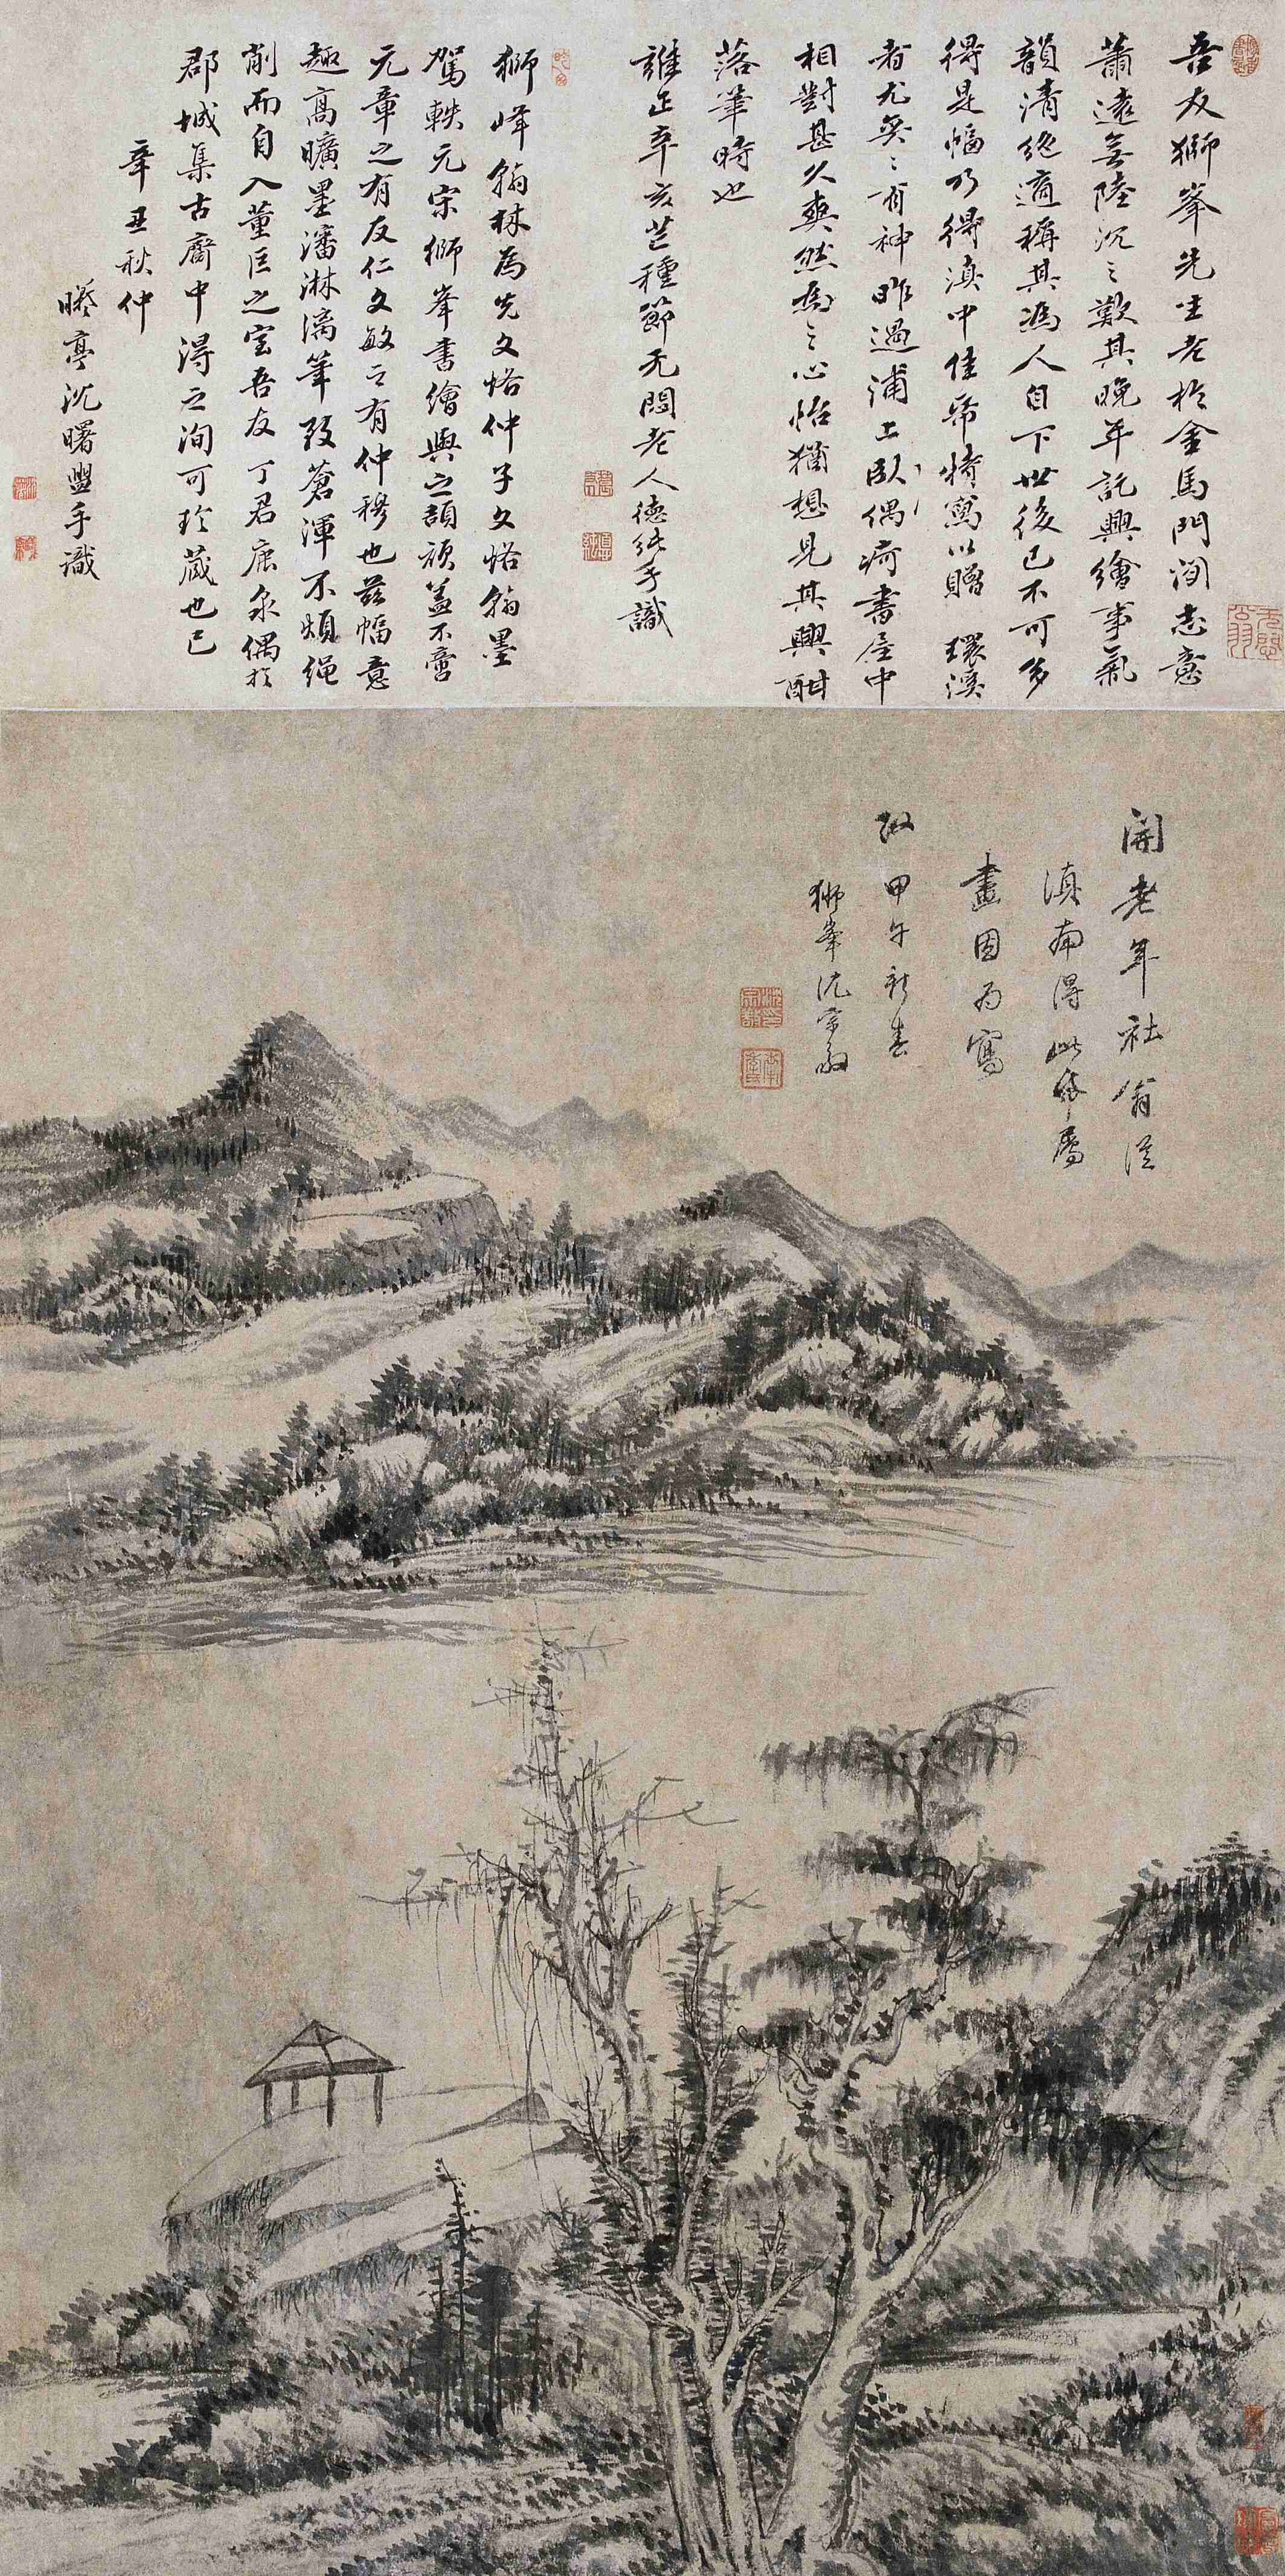 吾友獅峯先生老於金馬門洵志意
蕭遠無陸沉之歎其晚年託興繪事氣
韻清絕適稱其為人自下世後已不可多
得是幅乃得滇中佳帋特寫以贈環溪
者尤奕〻有神昨過浦上臥痾書屋中偶
相對甚久爽然為之心怡猶想見其興酣
落筆時也
雖正辛亥芒種節无悶老人德純手識
獅峰翰林為先文恪仲子文恪翰墨
駕軼元宋獅峯書繪與之頡頏蓋不啻
元章之有友仁文敏之有仲穆也茲幅意
趣高曠墨瀋淋漓筆致蒼渾不煩繩
削而自入董巨之室吾友丁君鹿泉偶於
郡城集古齋中得之洵可珍藏也已
辛丑秋仲
曖亭沈曙盥手識
開老年社翁從
滇南得此帋屬
畫因為寫
政甲午新春
獅峯沈宗敬